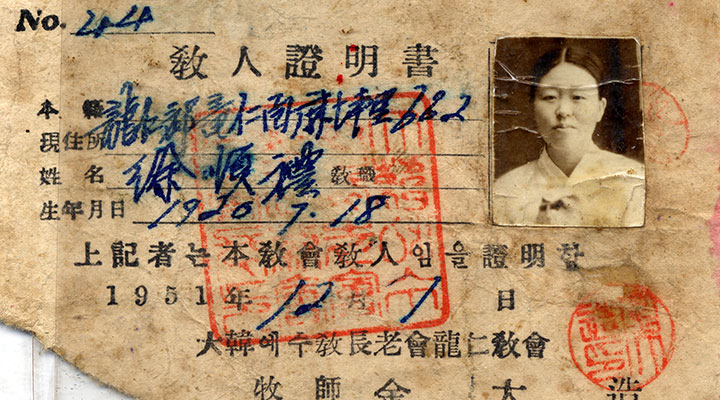 No. 44
敎人證明書
本籍 龍仁郡竜仁面麻坪里 682
現住所
姓名 徐順禮 敎職
生年月日 1920 7. 18
上記者는本敎會敎人임을證明함
1951年 12月 1日
大韓예수敎長老會龍仁敎會
牧師 金大